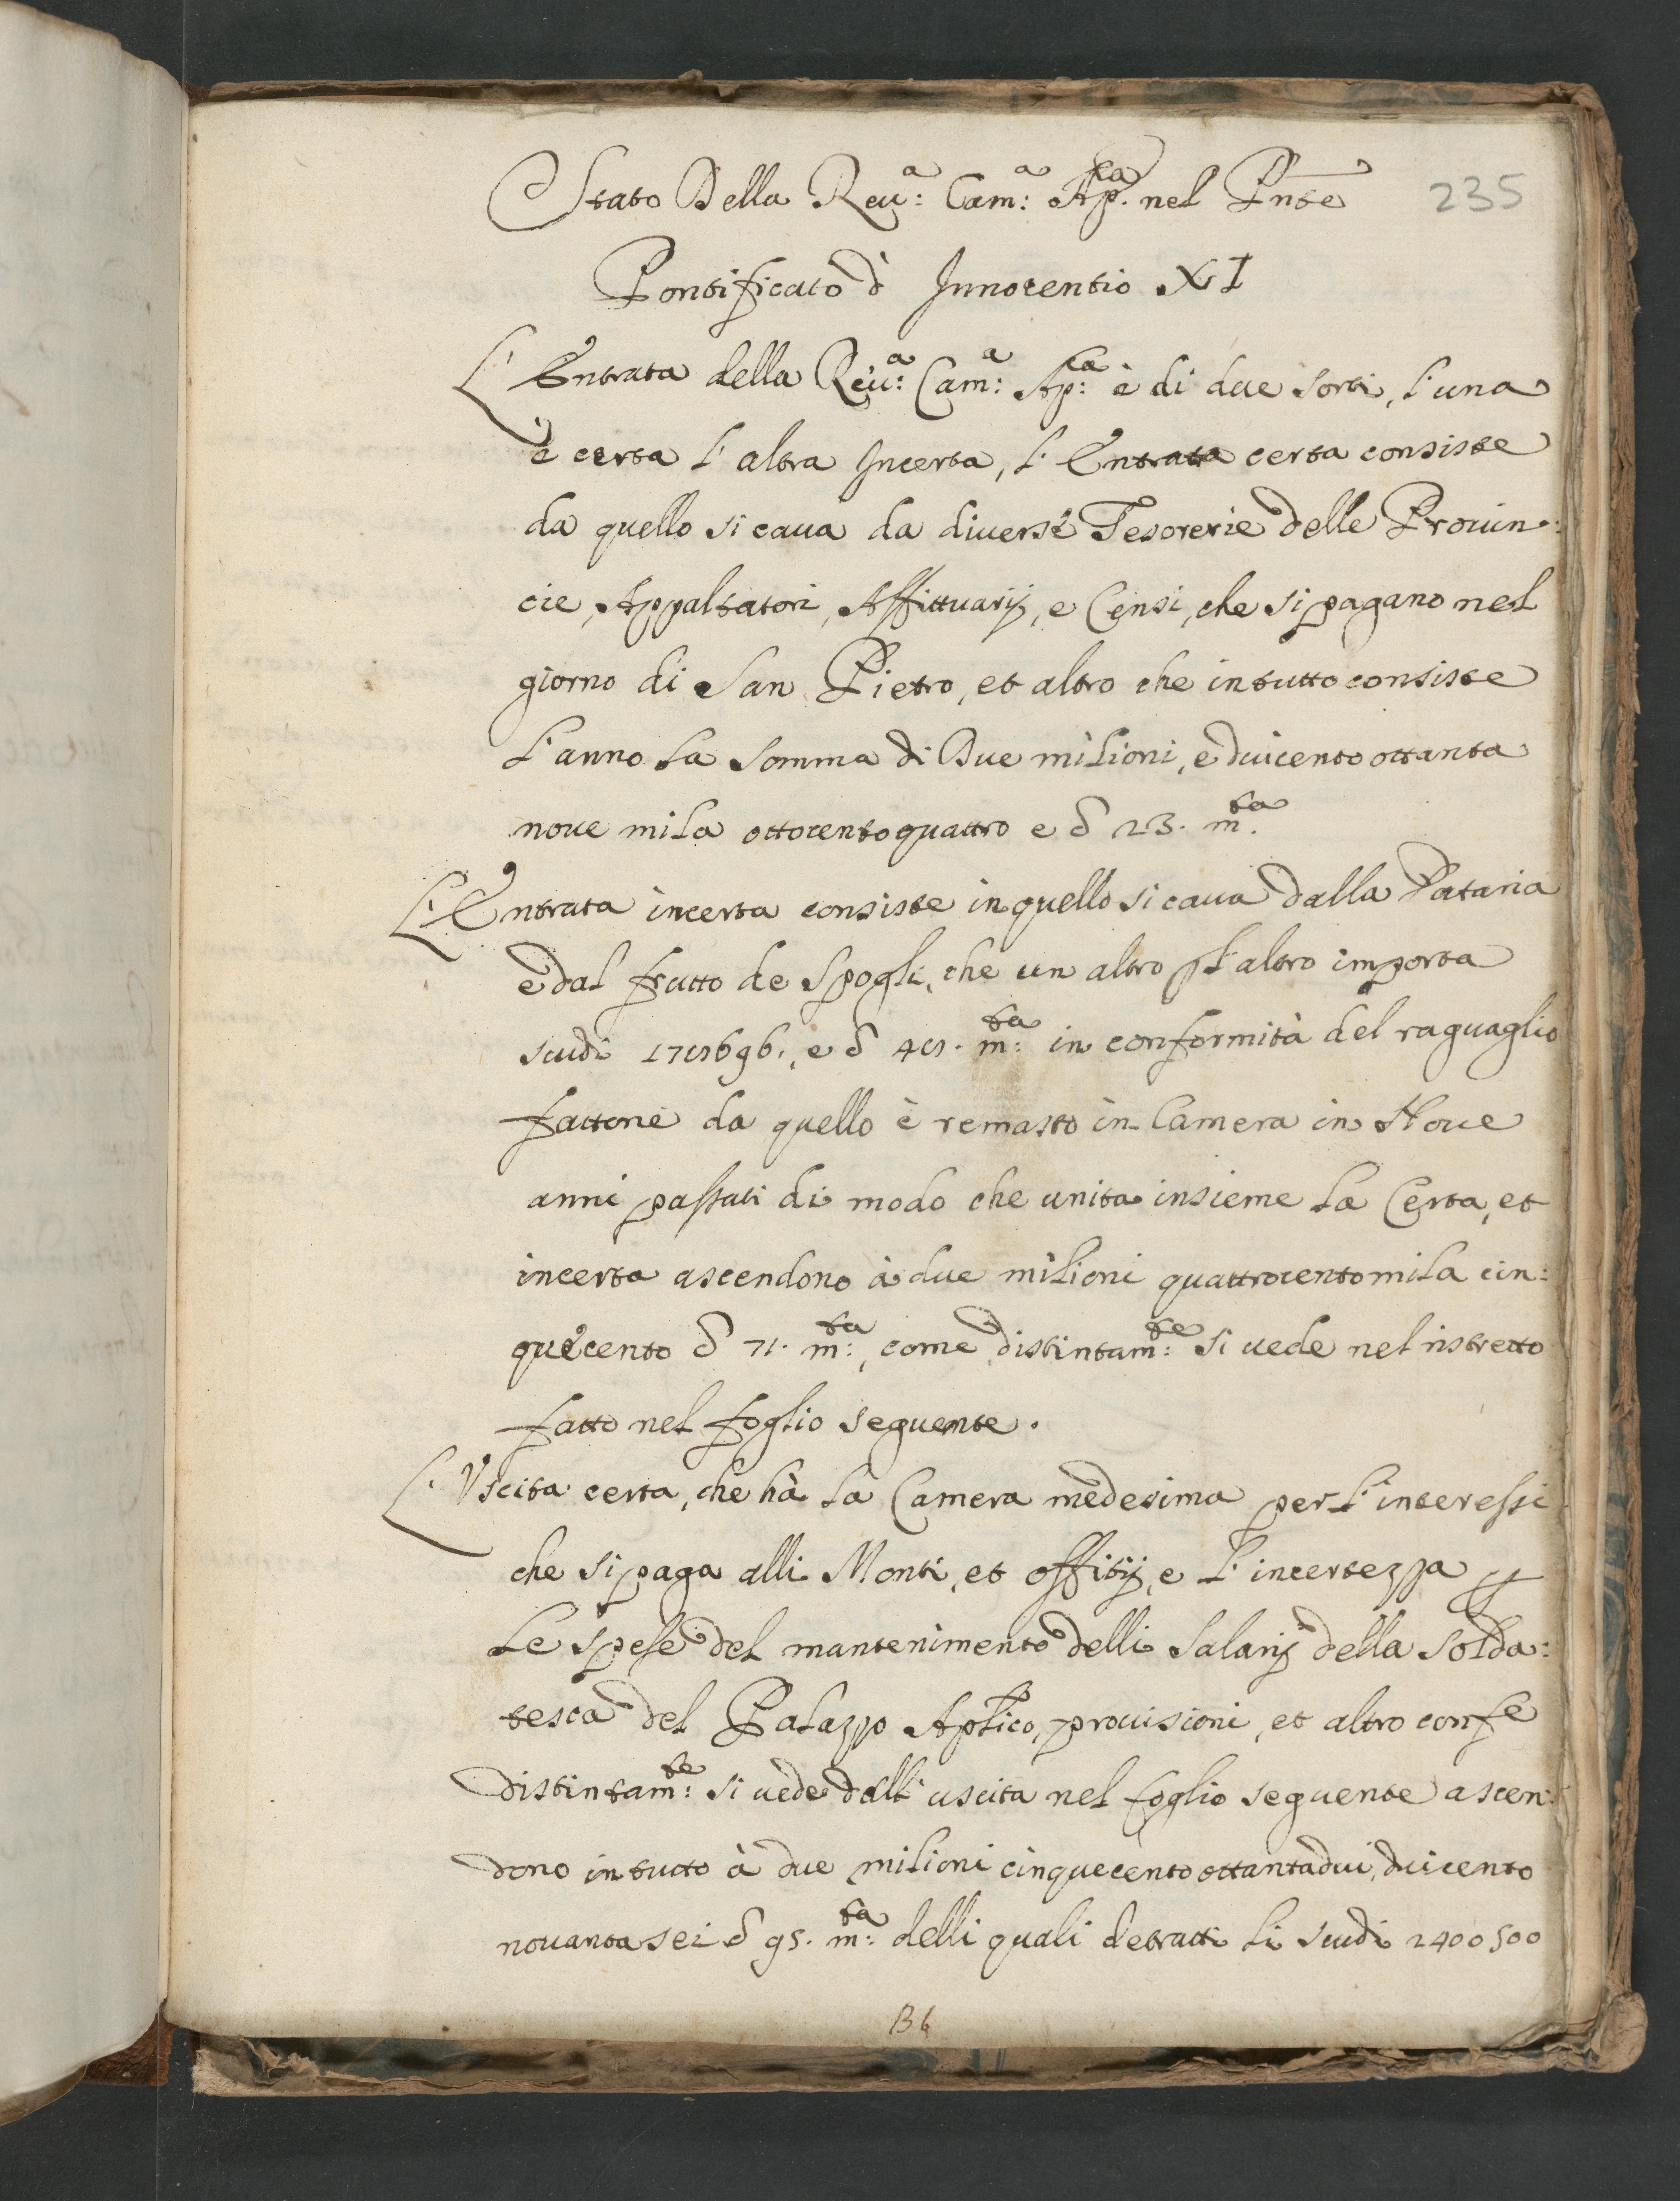 Stato Della Reu:a Cam:a Ap.ca nel Pnte
235
Pontificato d' Innocentio XI
L' Entrata della Reu:a Cam:a Ap:ca è di due sorti, l'una
è certa l'altra Incerta, l'Entrata certa consiste
da quello si caua da diuerse Tesorerie delle Prouin:
cie, Appaltatori, Affittuarij, e Censi, che si pagano nel
giorno di San Pietro, et altro che in tutto consiste
l'anno la somma di Due milioni, e duicento ottanta
noue mila ottocento quattro e d 23. m.ta
L'Entrata incerta consiste in quello si caua dalla Dataria
e dal frutto de Spogli, che un altro p l'altro importa
scudi e d m:ta in conformità del raguaglio
fattone da quello è remasto in Camera in Noue
anni passati di modo che unita insieme la Certa, et
incerta ascendono à due milioni quattrocentomila cin:
quecento d 71. m:ta, come distintam:te si uede nel ristretto
fatto nel foglio seguente.
L'Vscita certa, che hà la Camera medesima per l'interessi
che si paga alli Monti, et offitij, e l'incertezza p
le spese del mantenimento delli salarij della solda:
tesca del Palazzo Aplico, prouisioni, et altro conf.e
distintam:te si uede dall'uscita nel foglio seguente ascen:
dono in tutto à due milioni cinquecento ottantadui, duicento
nouanta sei d 95. m:ta delli quali detratti li scudi 2400500
B6